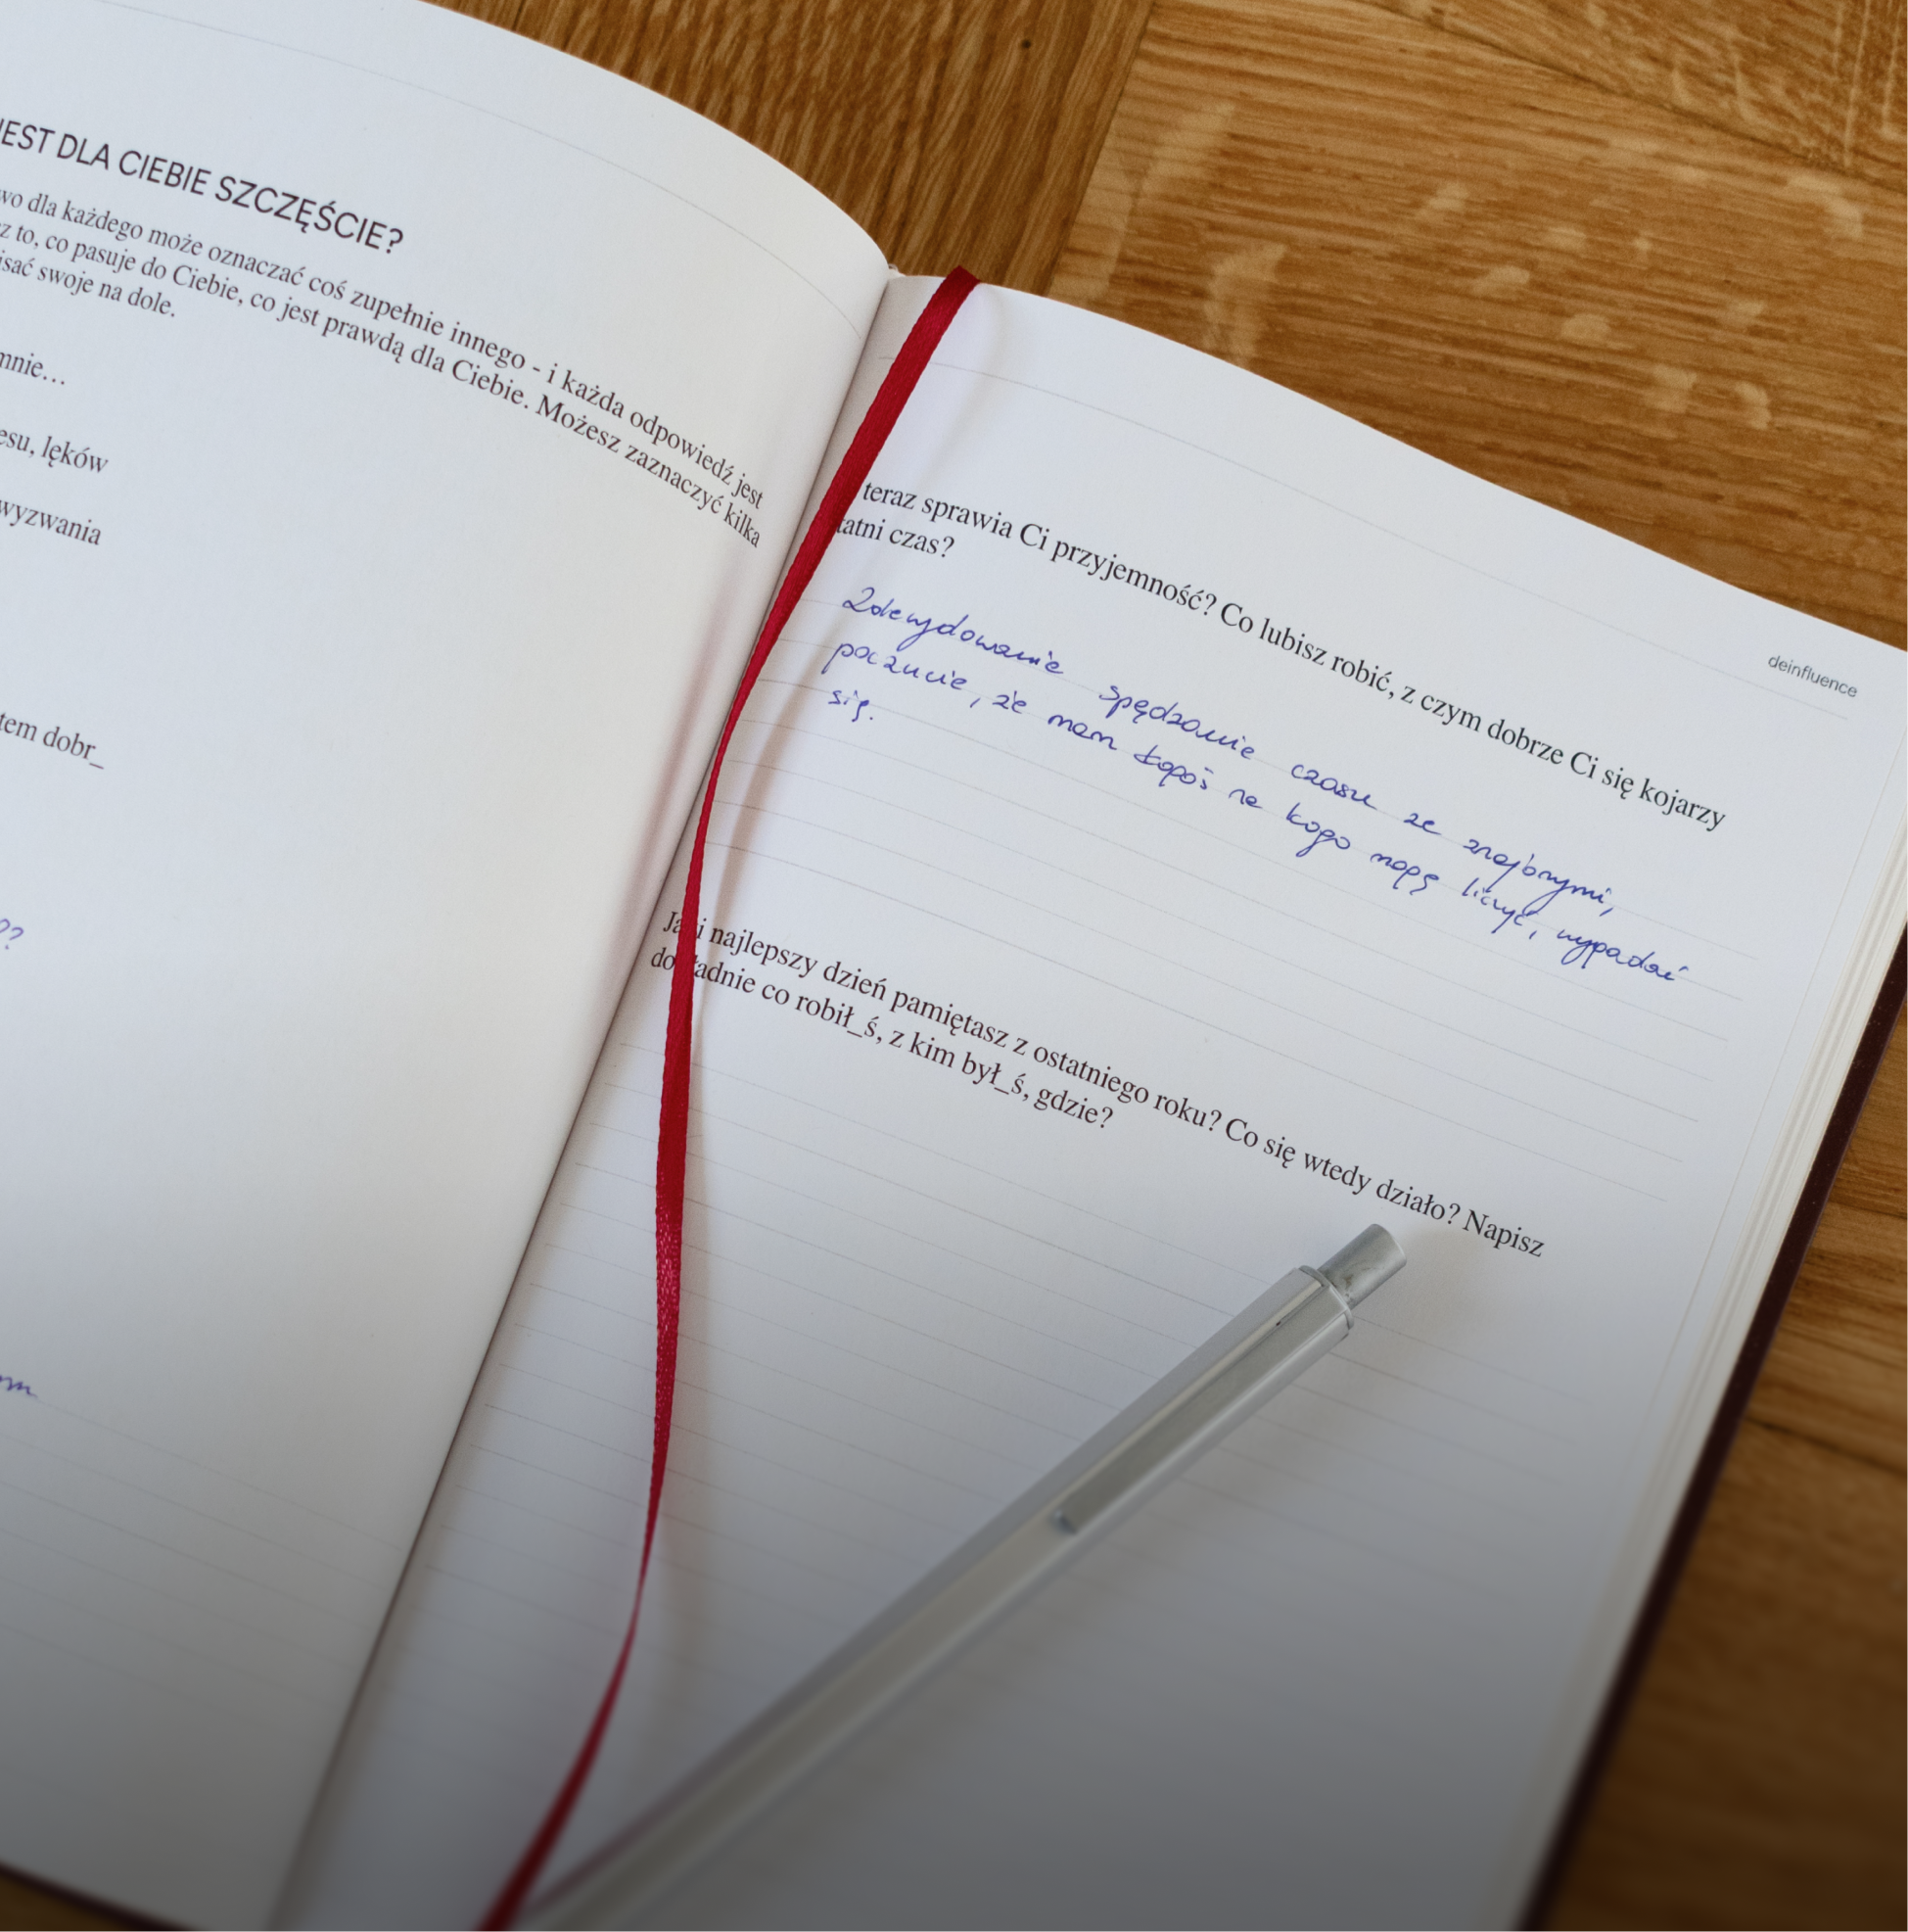 JEST DLA CIEBIE SZCZĘŚCIE?
wo dla każdego może oznaczać coś zupełnie innego - i każda odpowiedź jest
z to, co pasuje do Ciebie, co jest prawdą dla Ciebie. Możesz zaznaczyć kilka
isać swoje na dole.
mnie...
esu, lęków
wyzwania
tem dobr_
??
deinfluence
teraz sprawia Ci przyjemność? Co lubisz robić, z czym dobrze Ci się kojarzy
tatni czas?
Zdecydowanie spędzanie czasu ze znajomymi,
poczucie, że mam kogoś na kogo mogę liczyć, wygadać
się.
Jaki najlepszy dzień pamiętasz z ostatniego roku? Co się wtedy działo? Napisz
dokładnie co robił_ś, z kim był_ś, gdzie?